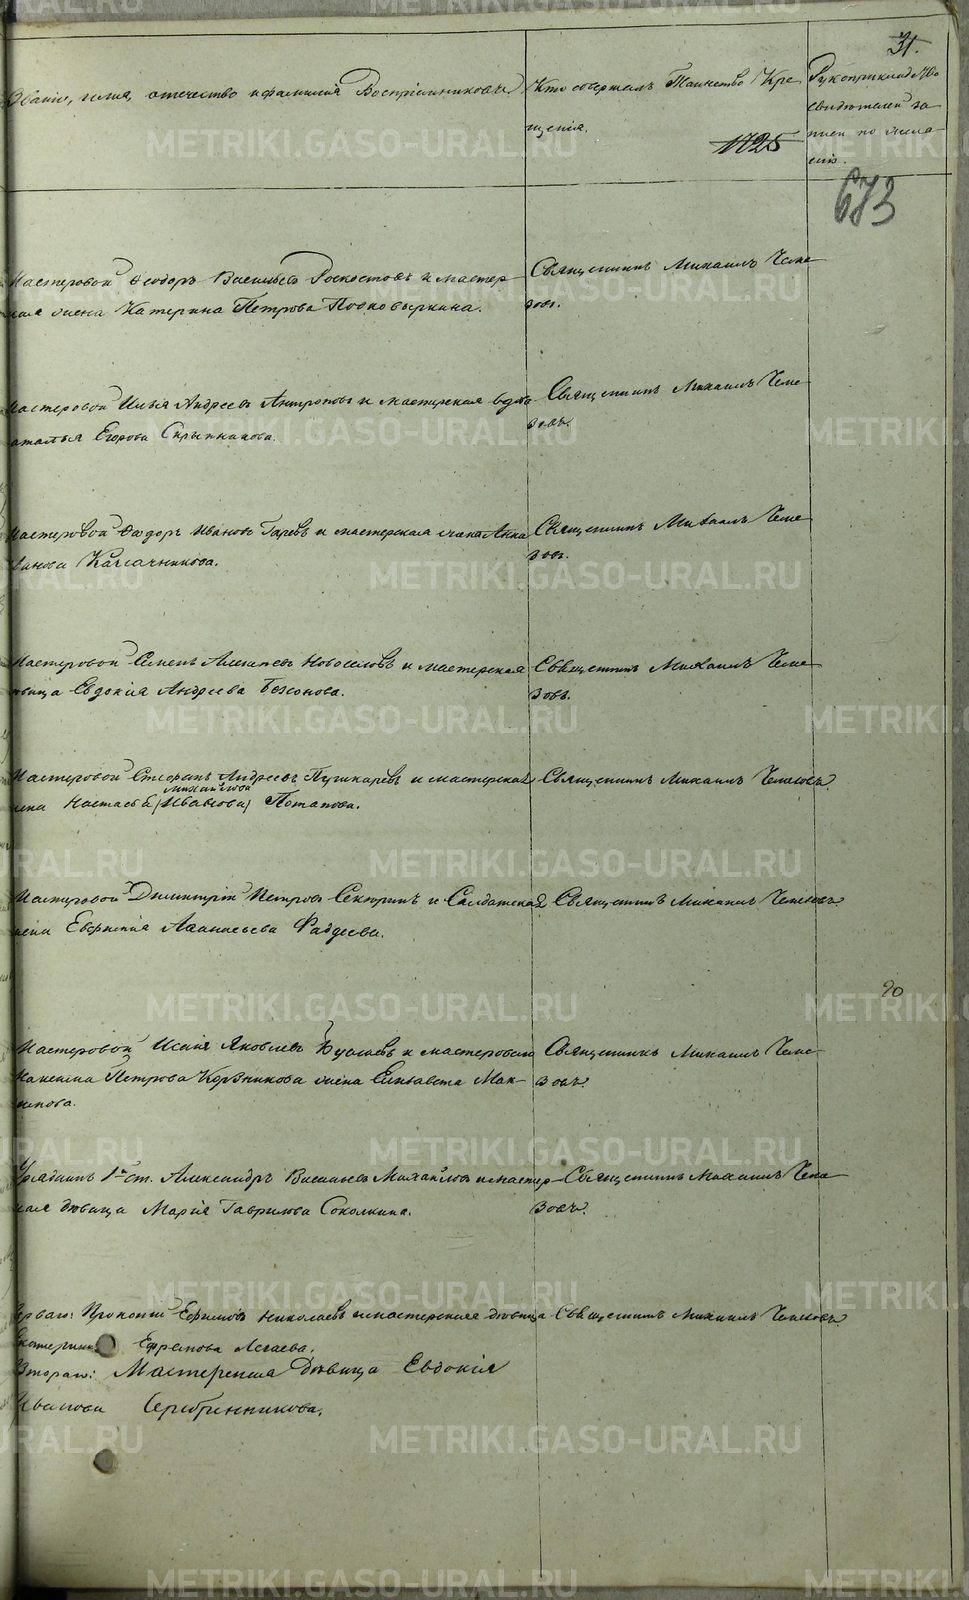 31.
Званіе, имя, отечество и фамилія Воспріемниковъ.
Кто совершалъ Таинство Кре-
щенія.
Рукоприкладство
свидѣтелей за-
писи по жела-
нію.
1725
673
Мастеровой Ѳеодоръ Васильевъ и мастер-
ская жена Катерина Петрова Подковыркина.
Священникъ Михаилъ Чеме-
зовъ.
Мастеровой Илья Андреевъ Антроповъ и мастерская вдова
Наталья Егорова Скрыпникова.
Священникъ Михаилъ Чеме-
зовъ.
Мастеровой Ѳеодоръ Ивановъ и мастерская жена Анна
Иванова Калачникова.
Священникъ Михаилъ Чеме-
зовъ.
Мастеровой Семенъ Новоселовъ и мастерская
дѣвица Евдокія Андреева
Священникъ Михаилъ Чеме-
зовъ.
Мастеровой Андреевъ Пушкаревъ и мастерская
Михайлова
жена Настасья (Иванова) Потапова.
Священникъ Михаилъ Чемезовъ.
Мастеровой Димитрій Петровъ Секюринъ и Салдатская
жена Евфимія Аѳанасьева Фаддеева.
Священникъ Михаилъ Чемезовъ.
90
Мастеровой Яковлевъ и мастероваго
Петрова жена Елизавета Мак-
симова.
Священникъ Михаилъ Чеме-
зовъ.
Урядникъ 1й ст. Александръ Васильевъ Михайловъ и мастер-
ская дѣвица Марія Гаврилова Соколкина.
Священникъ Михаилъ Чеме-
зовъ.
Перваго: Прокопій Ефимовъ Николаевъ и мастерская дѣвица
Катерина Ефремова
Втораго: Мастерская Дѣвица Евдокія
Иванова Серебренникова.
Священникъ Михаилъ Чемезовъ.
METRIKI.GASO-URAL.RU